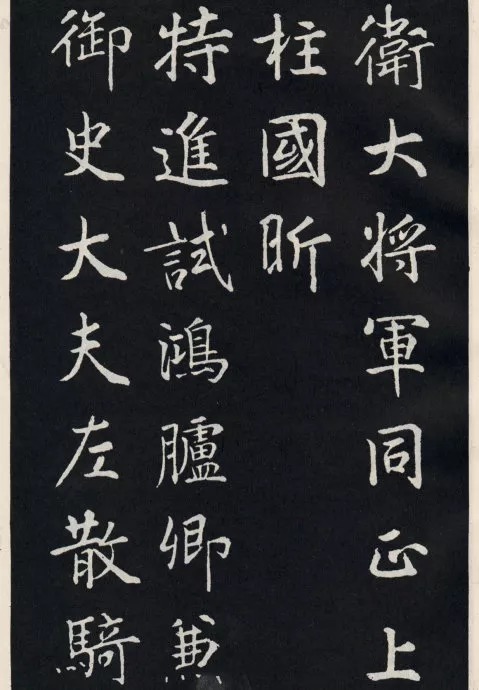 衛大将軍同正上
柱國昕
特進試鴻臚卿兼
御史大夫左散騎